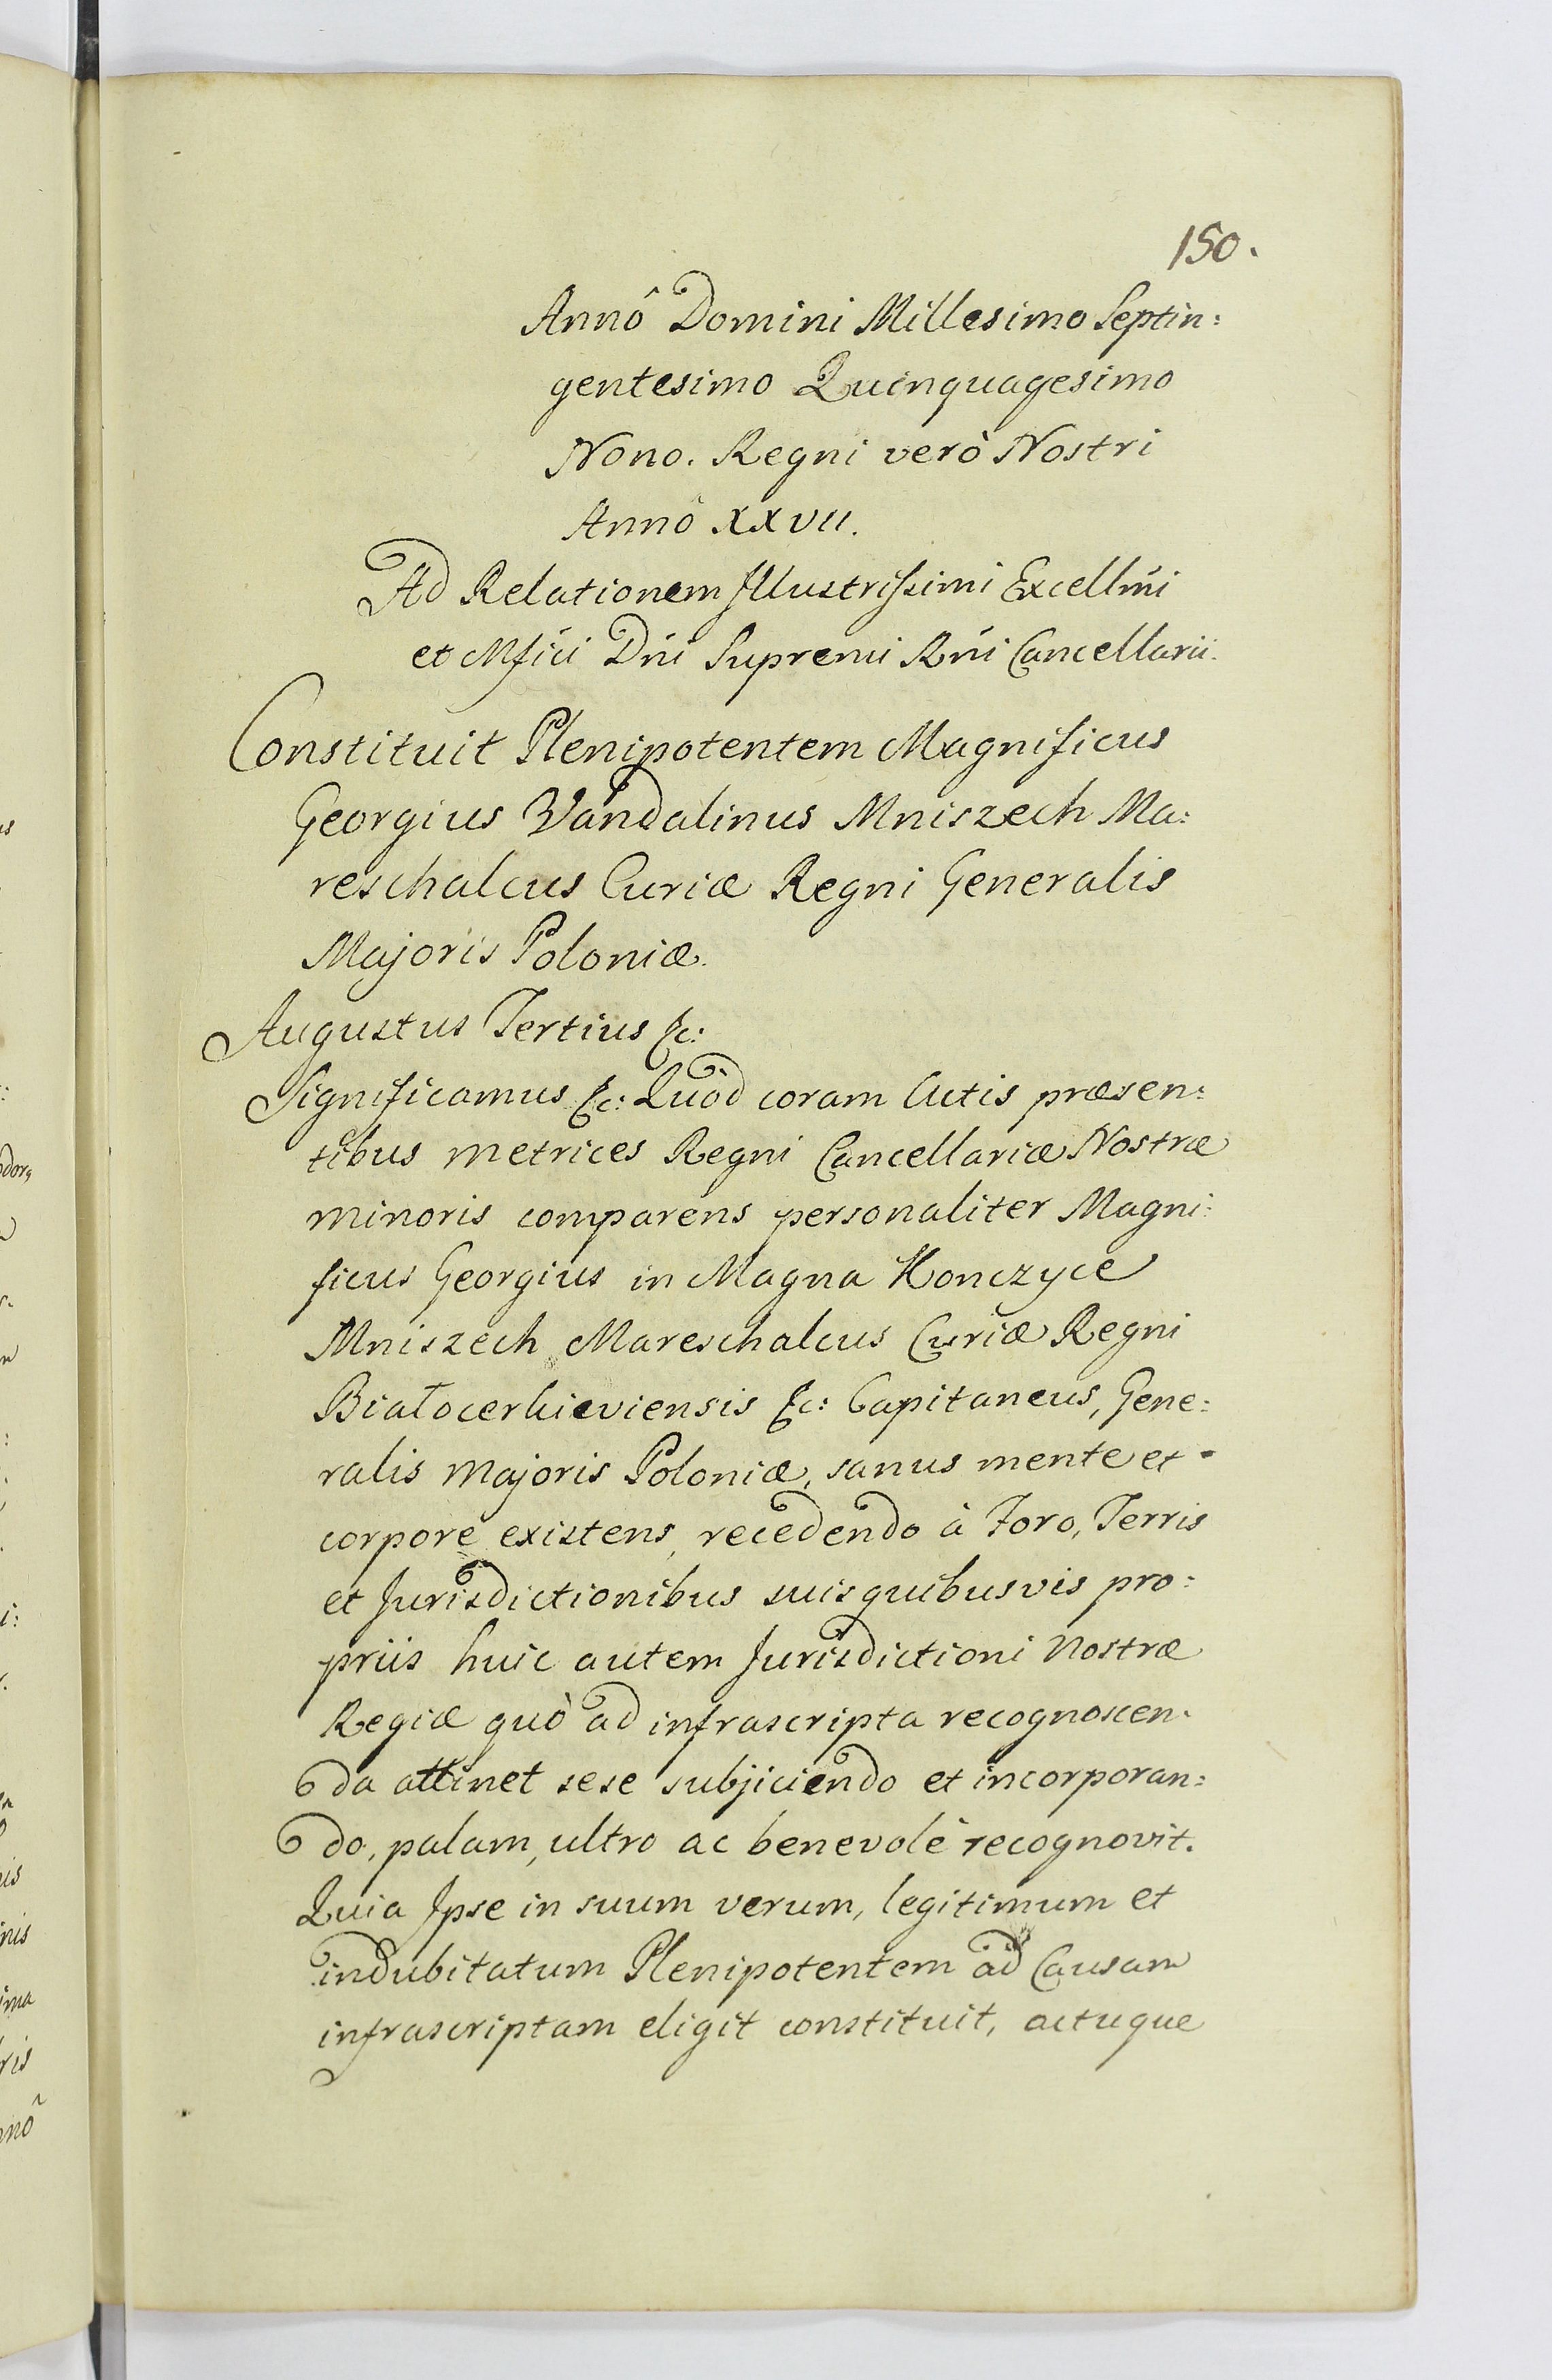 150.
Annô Domini Millesimo Septin:
gentesimo Quinquagesimo
Nono. Regni verò Nostri
Annô XXVII.
Ad Relationem Illustrissimi Excellm̃i
et Mfici Dn̄i Supremi Rn̄i Cancellarii.
Constituit Plenipotentem Magnificus
Georgius Vandalinus Mniszech Ma:
reschalcus Curiæ Regni Generalis
Majoris Poloniæ.
Augustus Tertius &c:
Significamus &c: Quòd coram Actis præsen:
tibus metrices Regni Cancellariæ Nostræ
minoris comparens personaliter Magni:
ficus Georgius in Magna Konczyce
Mniszech Mareschalcus Curiæ Regni
Białocerkieviensis &c: Capitaneus, Gene:
ralis Majoris Poloniæ, sanus mente et
corpore existens, recedendo à Foro, Terris
et Jurisdictionibus suis quibusvis pro:
priis huic autem Jurisdictioni Nostræ
Regiæ quò ad infrascripta recognoscen:
da attinet sese subjiciendo et incorporan:
do, palam, ultro ac benevolè recognovit.
Quia Ipse in suum verum, legitimum et
indubitatum Plenipotentem ad Causam
infrascriptam eligit constituit, actuque